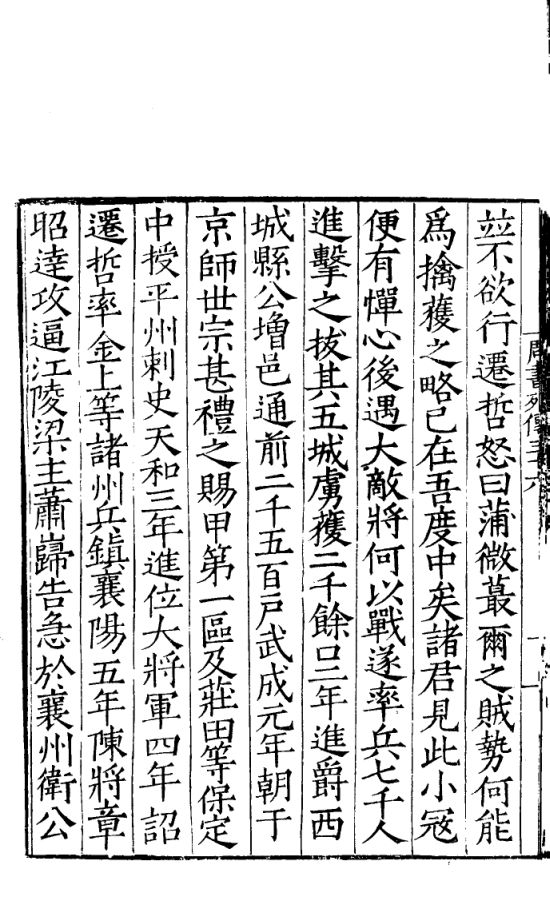 並不欲行遷哲怒曰蒲微蕞爾之賊勢何能
爲擒獲之略已在吾度中矣諸君見此小寇
便有憚心後遇大敵將何以戰遂率兵七千人
進擊之拔其五城虜獲二千餘口三年進爵西
城縣公增邑通前二千五百戸武成元年朝于
京師世宗甚禮之賜甲第一區及莊田等保定
中授平州刺史天和三年進位大將軍四年詔
遷哲率金上等諸州兵鎮襄陽五年陳將章
昭達攻逼江陵梁主蕭巋告急於襄州衛公